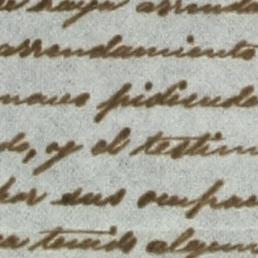 se haya arrenda
arrendamiento
manes pidienda
do, y el testim
por sus ocupac
ha tenido algun